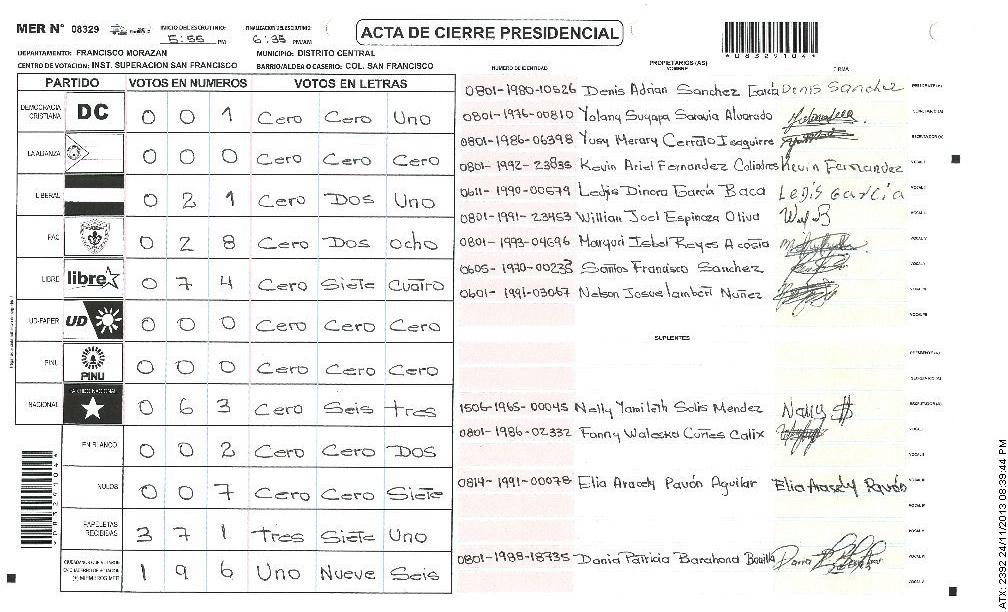 MER N° 08329
INICIO DEL ESCRUTINIO: 5:55 PM
FINALIZACION DEL ESCRUTINIO: 6:35 PM/AM
ACTA DE CIERRE PRESIDENCIAL
*08329104*
DEPARTAMENTO: FRANCISCO MORAZAN
MUNICIPIO: DISTRITO CENTRAL
CENTRO DE VOTACION: INST. SUPERACION SAN FRANCISCO
BARRIO/ALDEA O CASERIO: COL. SAN FRANCISCO
PARTIDO VOTOS EN NUMEROS VOTOS EN LETRAS
DEMOCRACIA CRISTIANA DC 0 0 1 Cero Cero Uno
LA ALIANZA 0 0 0 Cero Cero Cero
LIBERAL 0 2 1 Cero Dos Uno
PAC 0 2 8 Cero Dos Ocho
LIBRE libre 0 7 4 Cero Siete Cuatro
UD-FAPER UD 0 0 0 Cero Cero Cero
PINU PINU 0 0 0 Cero Cero Cero
NACIONAL PARTIDO NACIONAL 0 6 3 Cero Seis tres
EN BLANCO 0 0 2 Cero Cero Dos
NULOS 0 0 7 Cero Cero Siete
PAPELETAS RECIBIDAS 3 7 1 tres Siete Uno
1 9 6 Uno Nueve Seis
NUMERO DE IDENTIDAD PROPIETARIOS(AS) NOMBRE FIRMA
0801-1980-10526 Denis Adrian Sanchez Garcia Denis Sanchez
0801-1976-00810 Yolany Suyapa Saravia Alvarado
0801-1986-06398 Yusy Merary Cerrato Izaguirre
0801-1992-23835 Kevin Ariel Fernandez Colindres Kevin Fernandez
0611-1990-00579 Ledis Dinora García Baca Ledis Garcia
0801-1991-23453 Willian Joel Espinoza Oliva
0801-1993-04696 Maryuri Isbel Reyes Acosta
0605-1970-00233 Santos Francisco Sanchez
0601-1991-03067 Nelson Josue Lambert Nuñez
SUPLENTES
1506-1965-00045 Nelly Yamileth Solis Mendez Nelly
0801-1986-02332 Fanny Waleska Cortes Calix
0814-1991-00078 Elia Aracely Pavón Aguilar Elia Aracely Pavón
0801-1988-18735 Dania Patricia Barahona Bonilla
ATX: 2392 24/11/2013 08:39:44 PM